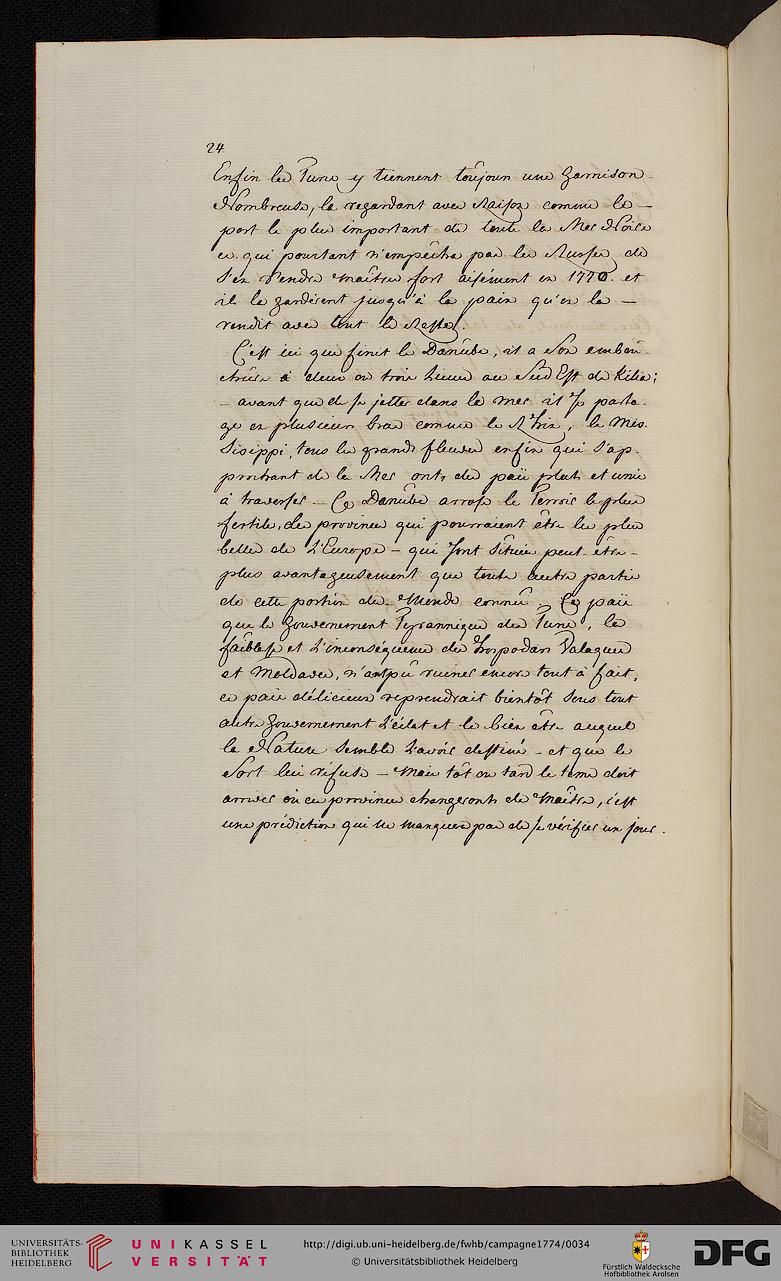 24
Enfin les Turcs y tiennent toûjours une Garnison
Nombreuse, la regardant avec Raison comme le —
port le plus important de toute la Mer Noire
ce qui pourtant n'empêcha pas les Russes de
s'en rendre maîtres fort aisément en 1770. et
il la gardèrent jusqu'à la paix qu'on la —
rendit avec tout le Reste.
C'est ici que finit le Danúbe, il a son embou-
chure à deux ou trois Lieues au Sud Est de Kilia;
— avant que de se jetter dans la mer il se parta-
ge en plusieurs bras comme le Rhin, le Mis-
sisippi, tous les grands fleuves enfin qui s'ap-
prochant de la Mer ont des païs plats et unis
à traverser — Ce Danúbe arrose le Terroir le plus
fertile, des provinces qui pourraient être les plus
belles de L'Europe — qui sont situées peut-être —
plus avantageusement que toute autre partie
de cette portion du Monde connu. Ces païs
que le Gouvernement Tyrannique des Turcs, la
faiblesse et L'inconséquence des Hospodars Valaques
et Moldaves, n'ont pu ruiner encore tout à fait,
ces païs délicieux reprendrait bientôt sous tout
autre Gouvernement L'éclat et le bien être auquel
la Nature semble L'avoir destiné — et que le
Sort lui réfuse — Mais tôt ou tard le tems doit
arriver où ces provinces changeront de Maître, c'est
une prédiction qui ne manquera pas de se vérifier un jour.
UNIVERSITÄTS-
BIBLIOTHEK
HEIDELBERG
UNIKASSEL
VERSITÄT
http://digi.ub.uni-heidelberg.de/fwhb/campagne1774/0034
© Universitätsbibliothek Heidelberg
Fürstlich Waldecksche
Hofbibliothek Arolsen
DFG